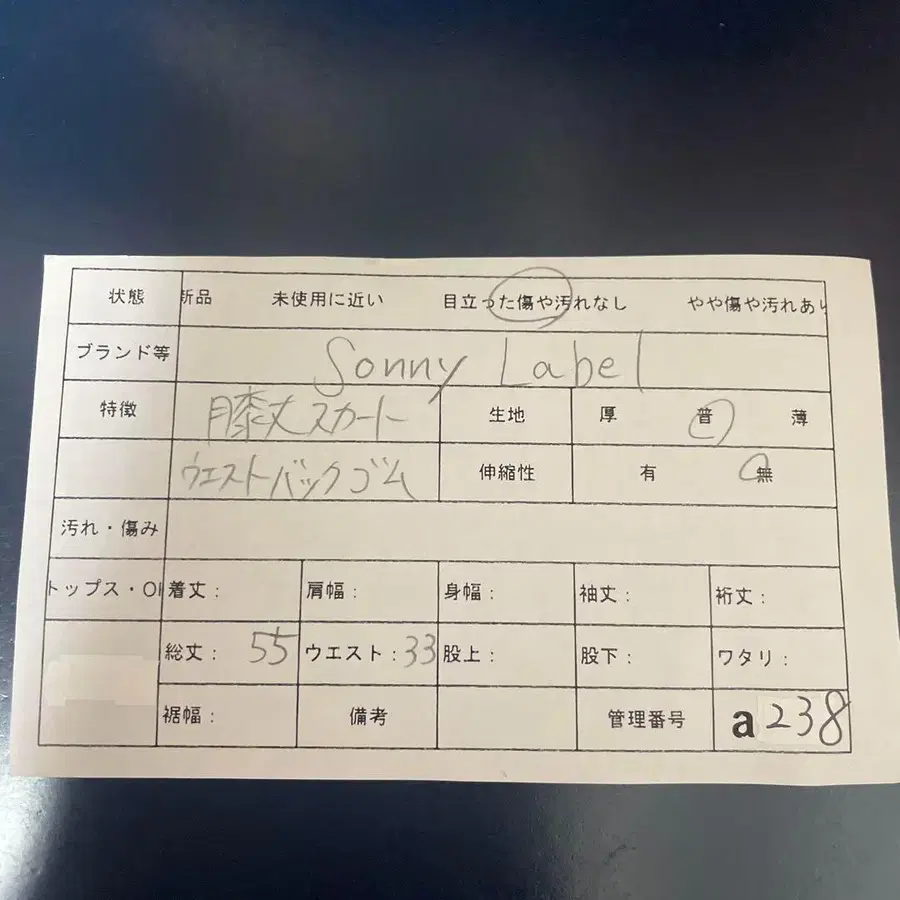 状態 新品 未使用に近い 目立った傷や汚れなし やや傷や汚れあり
ブランド等 Sonny Label
特徴 膝丈スカート 生地 厚 普 薄
ウエストバックゴム 伸縮性 有 無
汚れ・傷み
トップス・OP 着丈: 肩幅: 身幅: 袖丈: 裄丈:
総丈: 55 ウエスト:33 股上: 股下: ワタリ:
裾幅: 備考 管理番号 a238